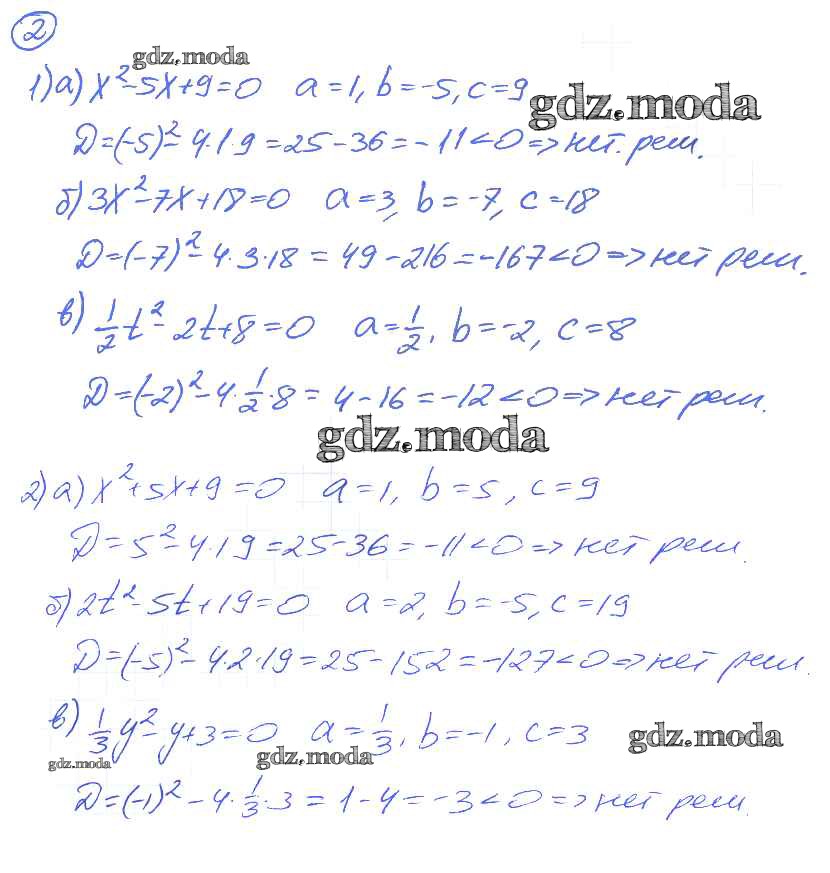 2
gdz.moda
1) а) x² - 5x + 9 = 0   a = 1, b = -5, c = 9
gdz.moda
D = (-5)² - 4·1·9 = 25 - 36 = -11 < 0 => нет. реш.
б) 3x² - 7x + 18 = 0   a = 3, b = -7, c = 18
D = (-7)² - 4·3·18 = 49 - 216 = -167 < 0 => нет реш.
в) 1/2 t² - 2t + 8 = 0   a = 1/2, b = -2, c = 8
D = (-2)² - 4·1/2·8 = 4 - 16 = -12 < 0 => нет реш.
gdz.moda
2) а) x² + 5x + 9 = 0   a = 1, b = 5, c = 9
D = 5² - 4·1·9 = 25 - 36 = -11 < 0 => нет реш.
б) 2t² - 5t + 19 = 0   a = 2, b = -5, c = 19
D = (-5)² - 4·2·19 = 25 - 152 = -127 < 0 => нет реш.
в) 1/3 y² - y + 3 = 0   a = 1/3, b = -1, c = 3
gdz.moda
gdz.moda
gdz.moda
D = (-1)² - 4·1/3·3 = 1 - 4 = -3 < 0 => нет реш.